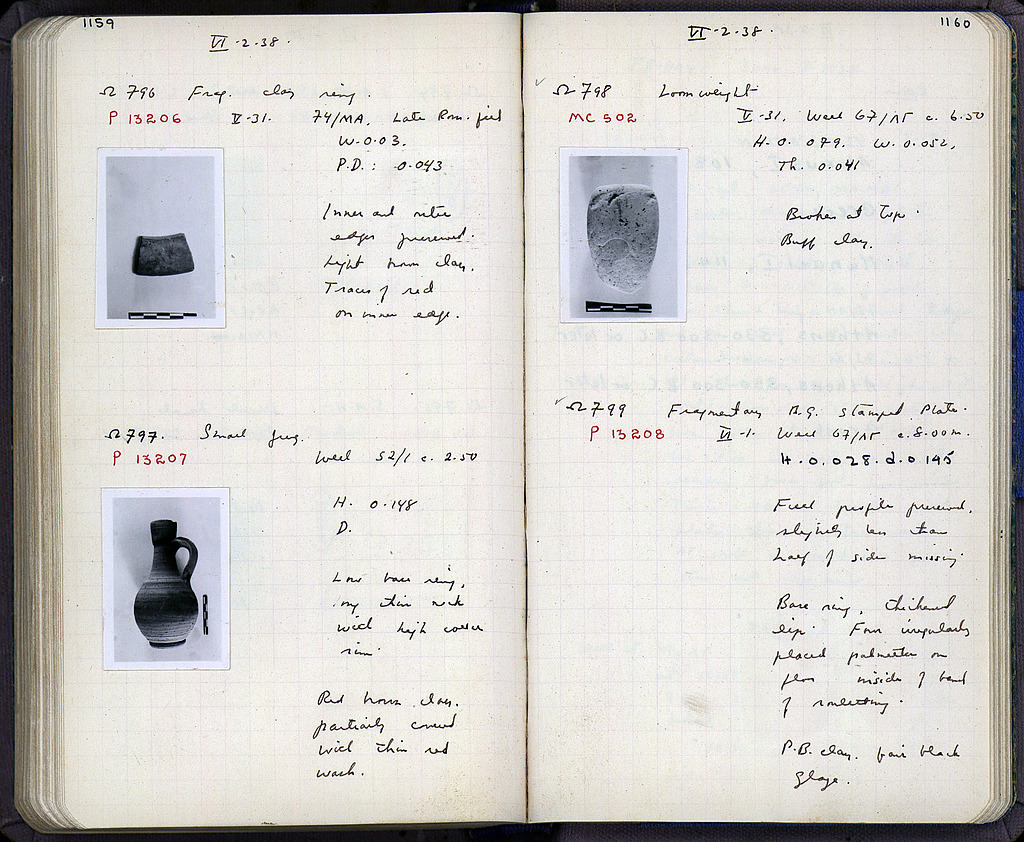 1159
VI-2-38.
Ω 796 Frag. clay ring.
P 13206 V-31. 74/MA. Late Rom. fill
W. 0.03.
P.D.: 0.043
Inner and outer
edges preserved.
Light brown clay.
Traces of red
on inner edge.
Ω 797. Small jug.
P 13207 Well S2/1 c. 2.50
H. 0.148
D.
Low base ring,
thin neck
with high collar
rim.
Red brown clay.
partially covered
with thin red
wash.
1160
VI-2-38.
✓ Ω 798 Loomweight
MC 502 V-31. Well 67/ΛΓ c. 6.50
H. 0.079. W. 0.052,
Th. 0.041
Broken at top.
Buff clay.
✓ Ω 799 Fragmentary B.G. stamped Plate.
P 13208 VI-1. Well 67/ΛΓ c. 8.00m.
H. 0.028. d. 0.145
Full profile preserved,
slightly less than
half of side missing.
Base ring, thickened
lip. Four irregularly
placed palmettes on
floor inside of band
of rouletting.
P.B. clay, fair black
glaze.